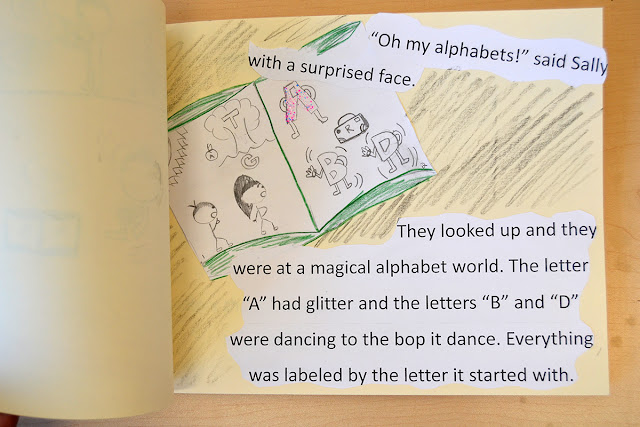 “Oh my alphabets!” said Sally
with a surprised face.
T
A
K
B
D
They looked up and they
were at a magical alphabet world. The letter
“A” had glitter and the letters “B” and “D”
were dancing to the bop it dance. Everything
was labeled by the letter it started with.